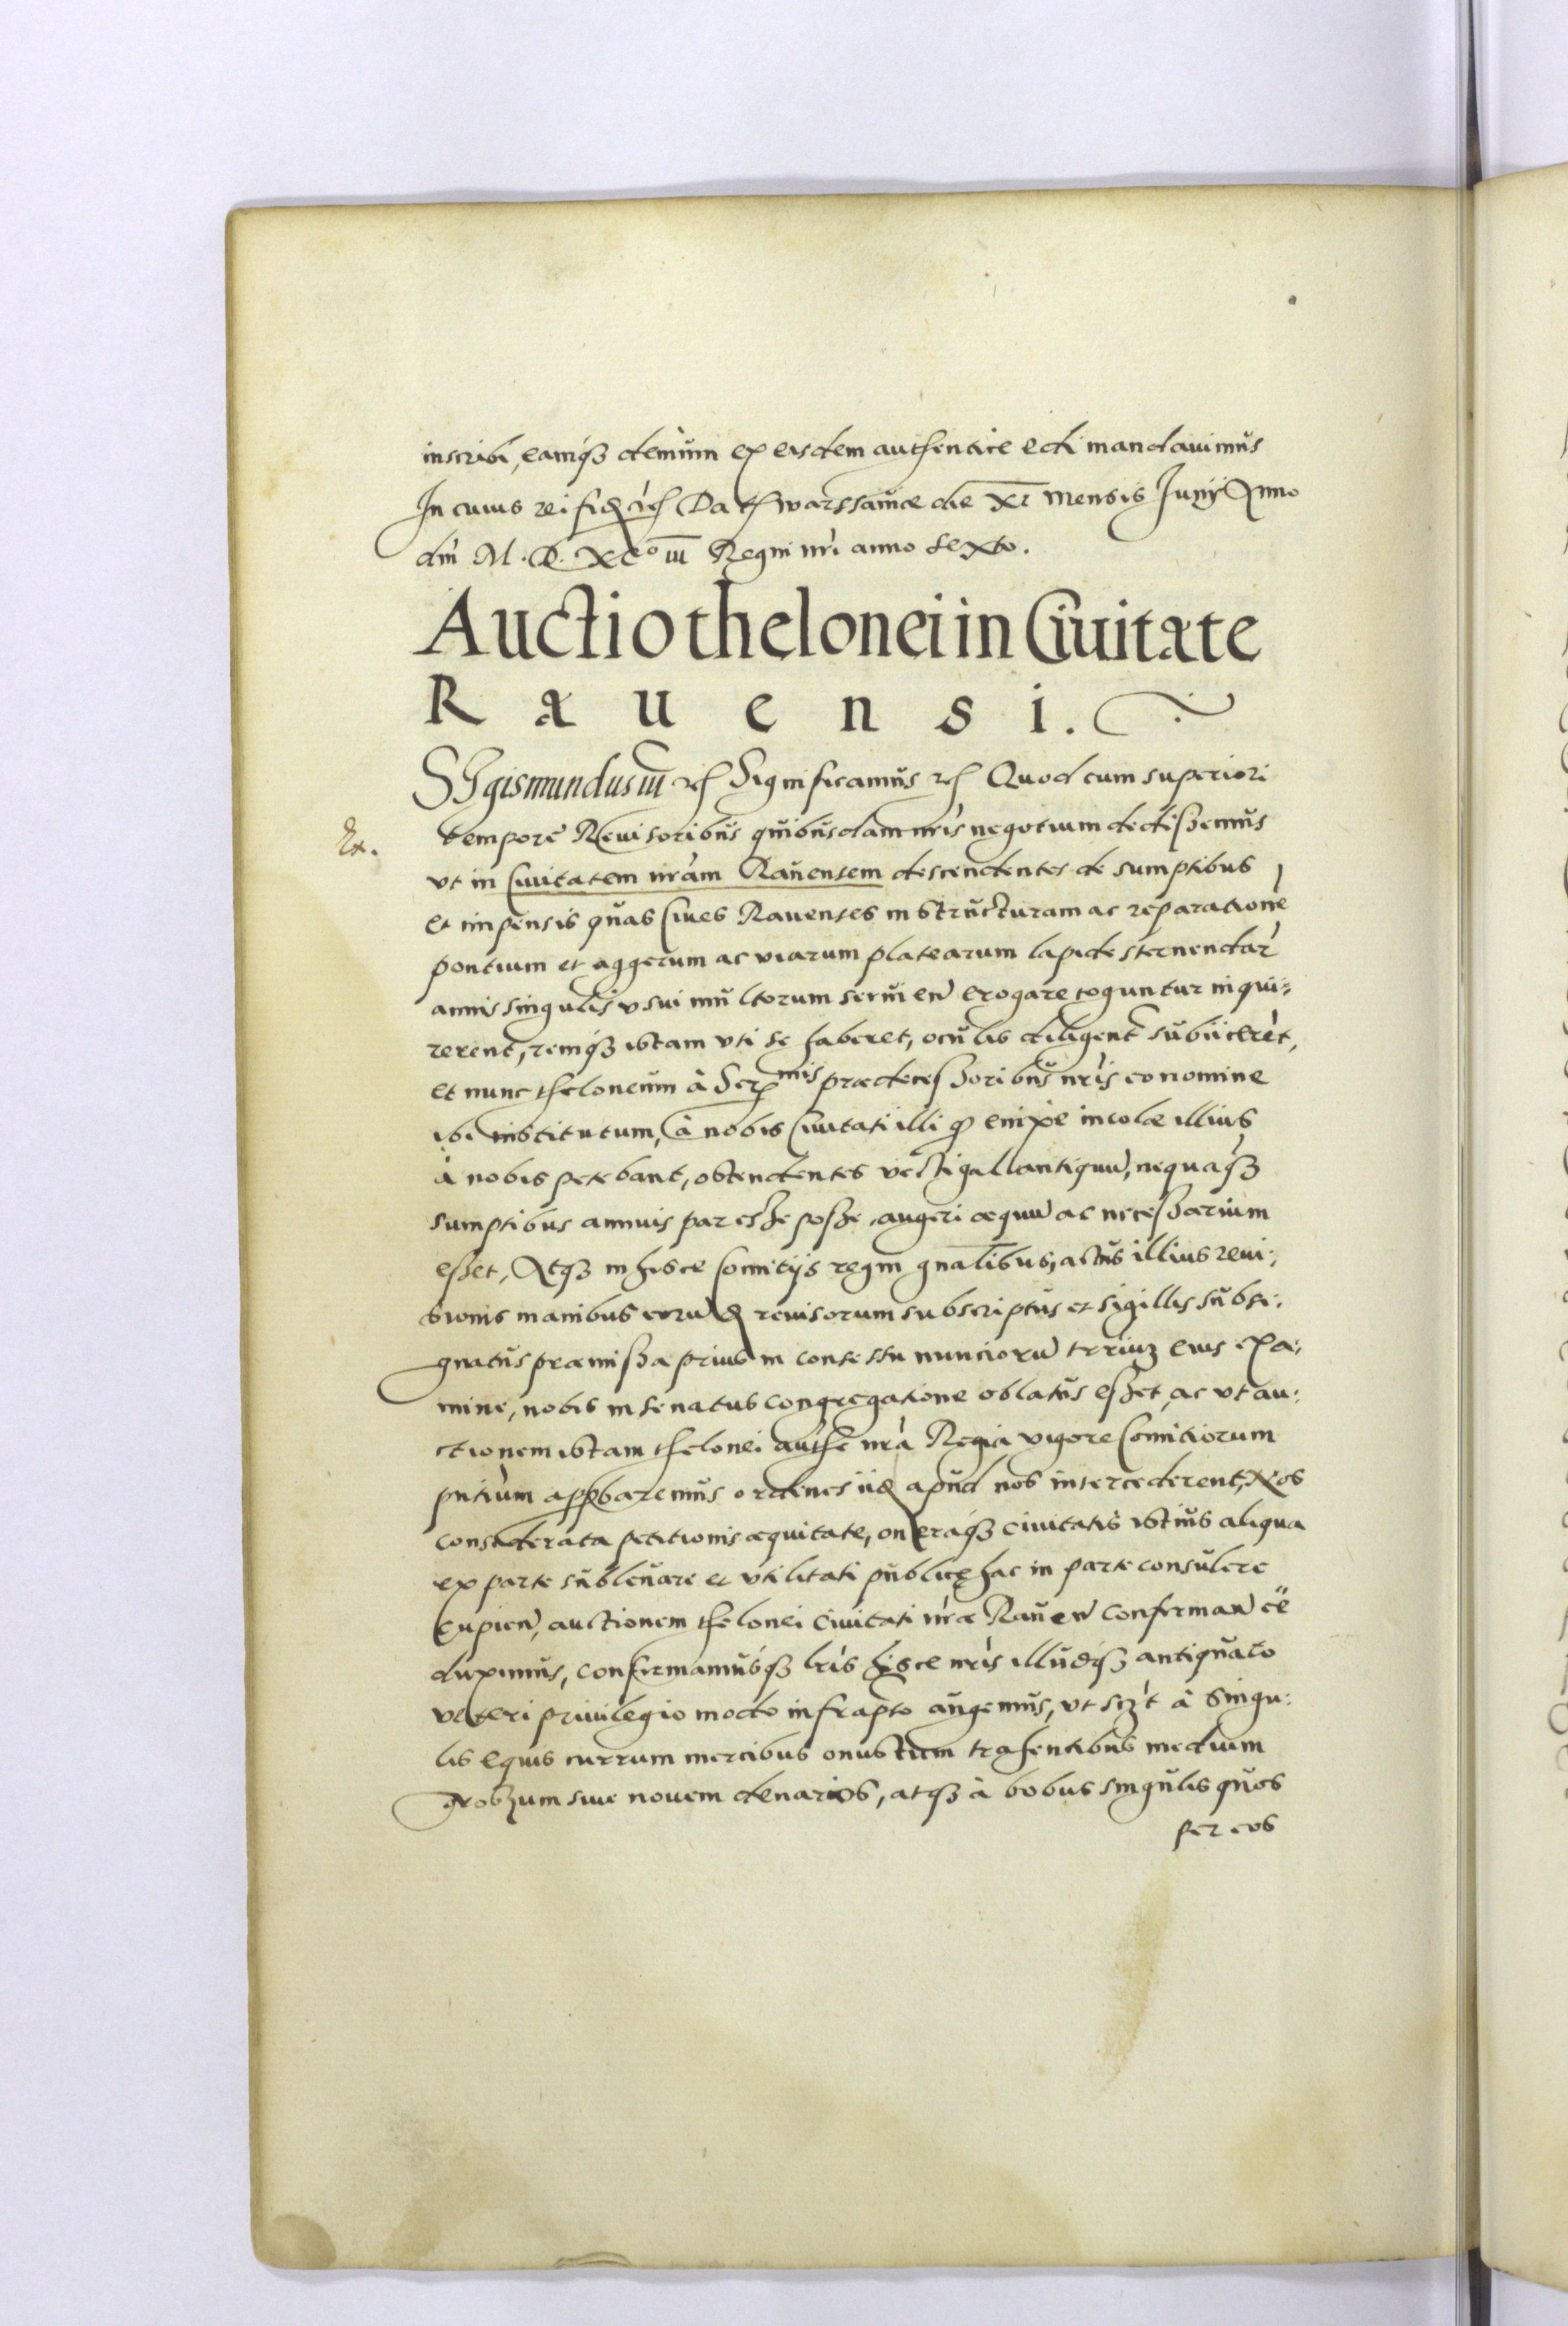 inscribi, eamq́ꝫ demum ex eisdem authentice edi mandauimus
In cuius rei fidē etc Dat Warssauiæ die XI mensis Iunij Anno
dnì M. D. XCᵒ III Regni nrì anno sexto.
Auctio thelonei in Ciuitate
Rauensi.
SIgismundus III etc Significamus etc Quod cum superiori
Ex.
tempore Reuisoribus quibusdam nrìs negotium dedissemus
vt in Ciuitatem nràm Rauensem descendentes de sumptibus
et impensis quas Ciues Rauenses in structuram ac reparationē
pontium et aggerum ac viarum platearum lapide sternendar̀
annis singulis vsui multorum seruien̄ erogare coguntur inqui:
rerent, remq́ꝫ istam vti se haberet, oculis diligent subijcerèt,
et nunc theloneum à Serᵐⁱˢ prædecessoribus nrìs eo nomine
ibi institutum, à nobis Ciuitati illi ꝙ enixe incolæ illius
à nobis petebant, ostendentes vectigal antiquū, nequaq́ꝫ
sumptibus annuis par esse posse, augeri æquū ac necessarium
esset, Atqꝫ in hisce Comitijs regni gnalibus, actus illius reui:
sionis manibus eorund reuisorum subscriptus et sigillis subsi:
gnatus præmissa prius in consessu nunciorū trriuꝫ eius exa:
mine, nobis in senatus congregatione oblatus esset, ac vt au:
ctionem istam thelonei authe nrà Regia vigore Comitiorum
pntìum approbaremus ordines ijd apud nos intercederent, Nos
considerata petitionis æquitate, oneraqꝫ ciuitatis istius aliqua
ex parte subleuare et vtilitati publicę hac in parte consulere
Cupien̄, auctionem thelonei Ciuitati nræ̀ Rauen̄ confirman̄ eē
duximus, confirmamusq́ꝫ lrìs hisce nrìs illudqꝫ antiquato
veteri priuilegio modo infrapto augemus, vt scꝫt à singu:
lis equis currum mercibus onustum trahentibus medium
grossum siue nouem denarios, atqꝫ à bobus singulis quos
per eos